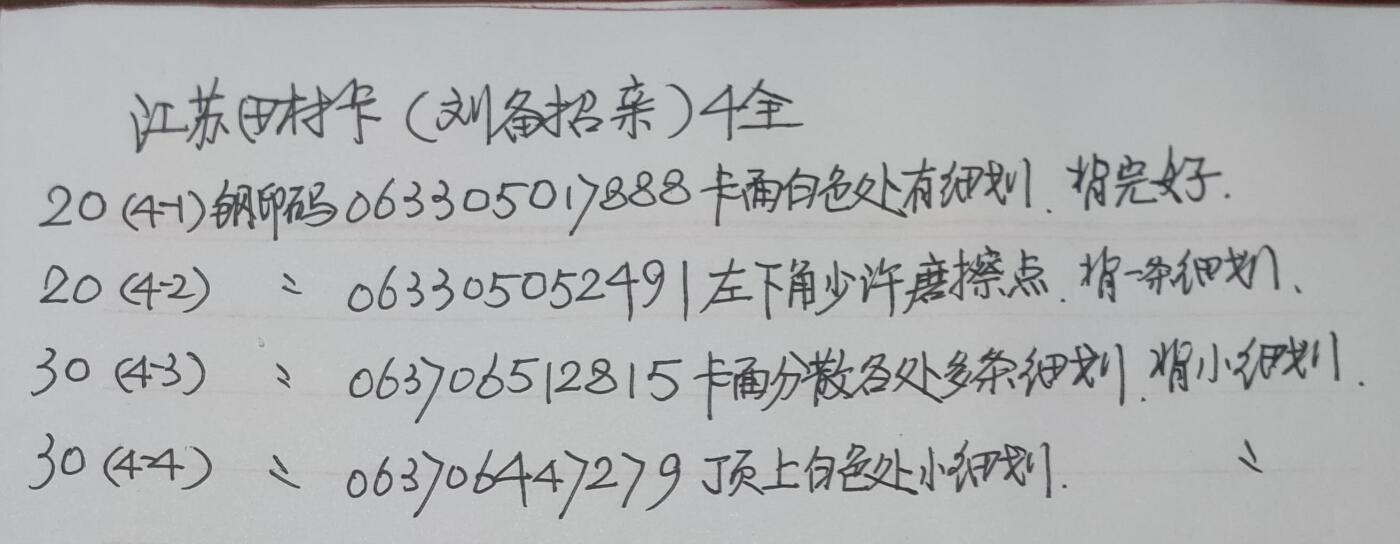 江苏田村卡(刘备招亲)4全
20(4-1)钢印码063305017888卡面白色处有细划、背完好.
20(4-2) 〃 063305052491左下角少许磨擦点、背一条细划、
30(4-3) 〃 063706512815卡面分散各处多条细划、背小细划.
30(4-4) 〃 063706447279顶上白色处小细划. 〃